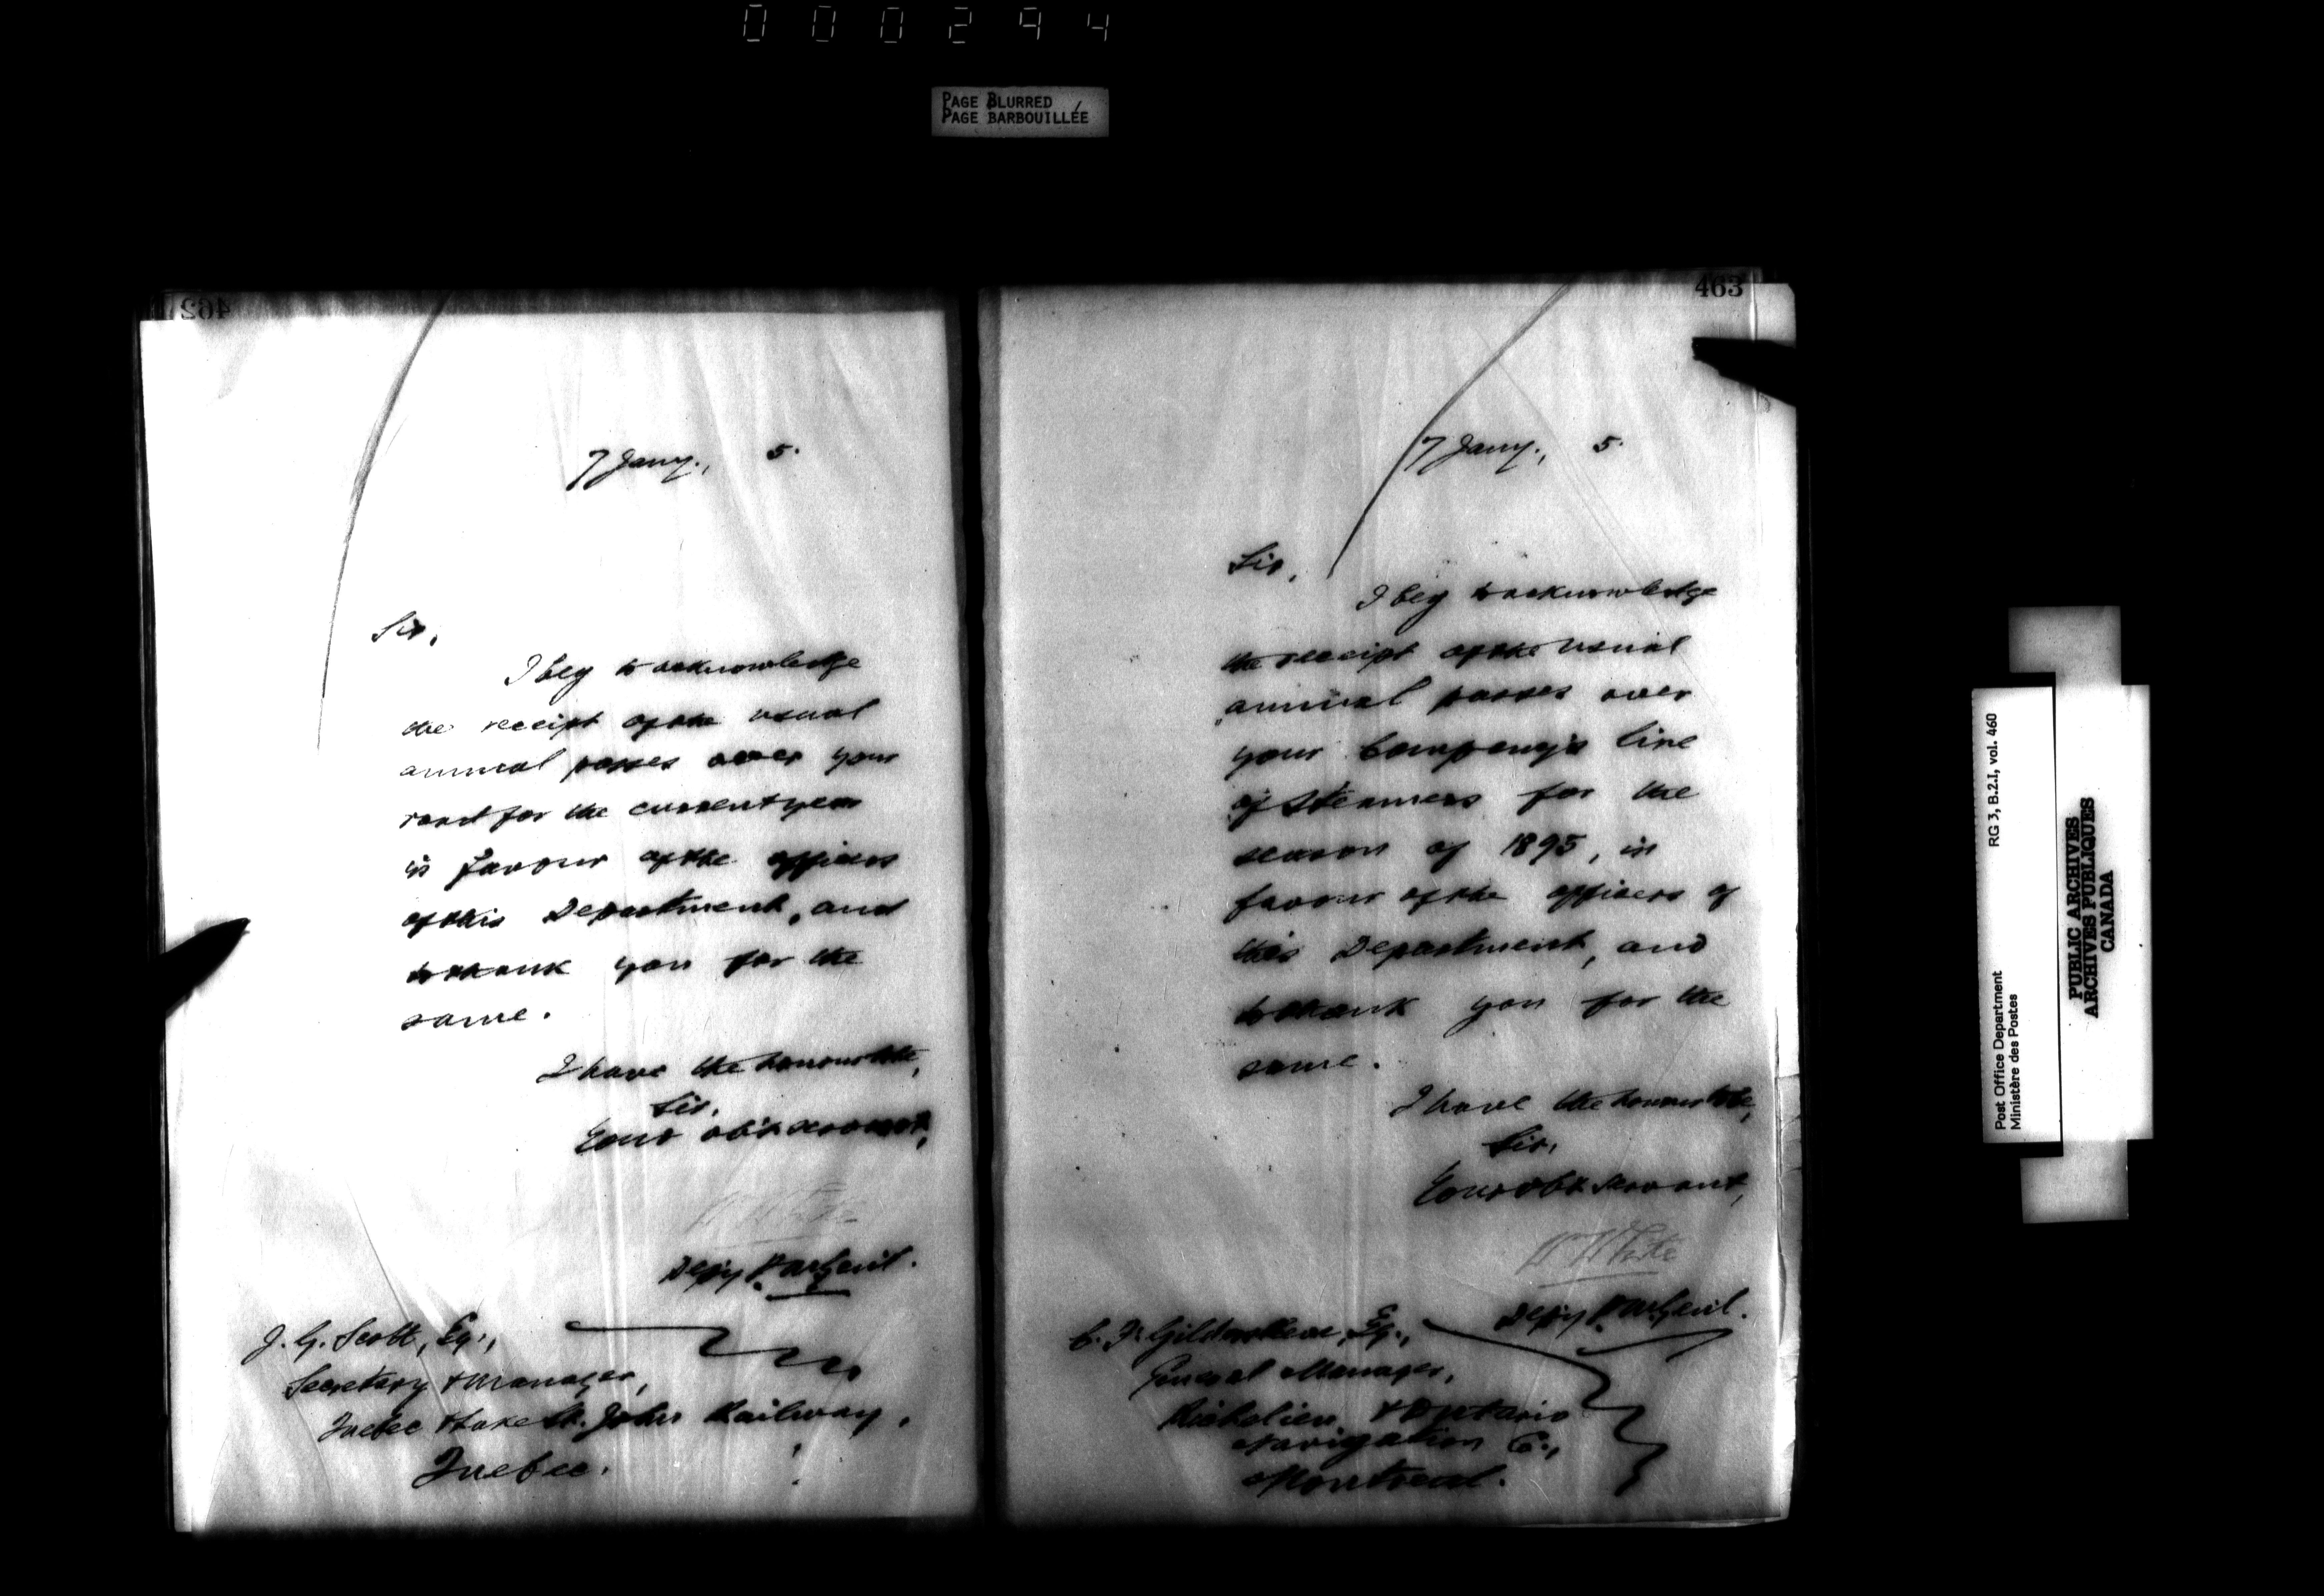 000294
PAGE BLURRED
PAGE BARBOUILLÉE
462
7 Jany., 5.
Sir,
I beg to acknowledge
the receipt of the usual
annual passes over your
road for the current year
in favour of the officers
of this Department, and
to thank you for the
same.
I have the honour to be,
Sir,
Your obt servant,
W White
Depy P. M. Genl.
J. G. Scott, Esq.,
Secretary & Manager,
Quebec & Lake St. John Railway,
Quebec.
463
7 Jany., 5.
Sir,
I beg to acknowledge
the receipt of the usual
annual passes over
your Company's line
of steamers for the
season of 1895, in
favour of the officers of
this Department, and
to thank you for the
same.
I have the honour to be,
Sir,
Your obt servant,
W White
Depy P. M. Genl.
C. F. Gildersleeve, Esq.,
General Manager,
Richelieu & Ontario
Navigation Co.,
Montreal.
Post Office Department RG 3, B.2.I, vol. 460
Ministère des Postes
PUBLIC ARCHIVES
ARCHIVES PUBLIQUES
CANADA